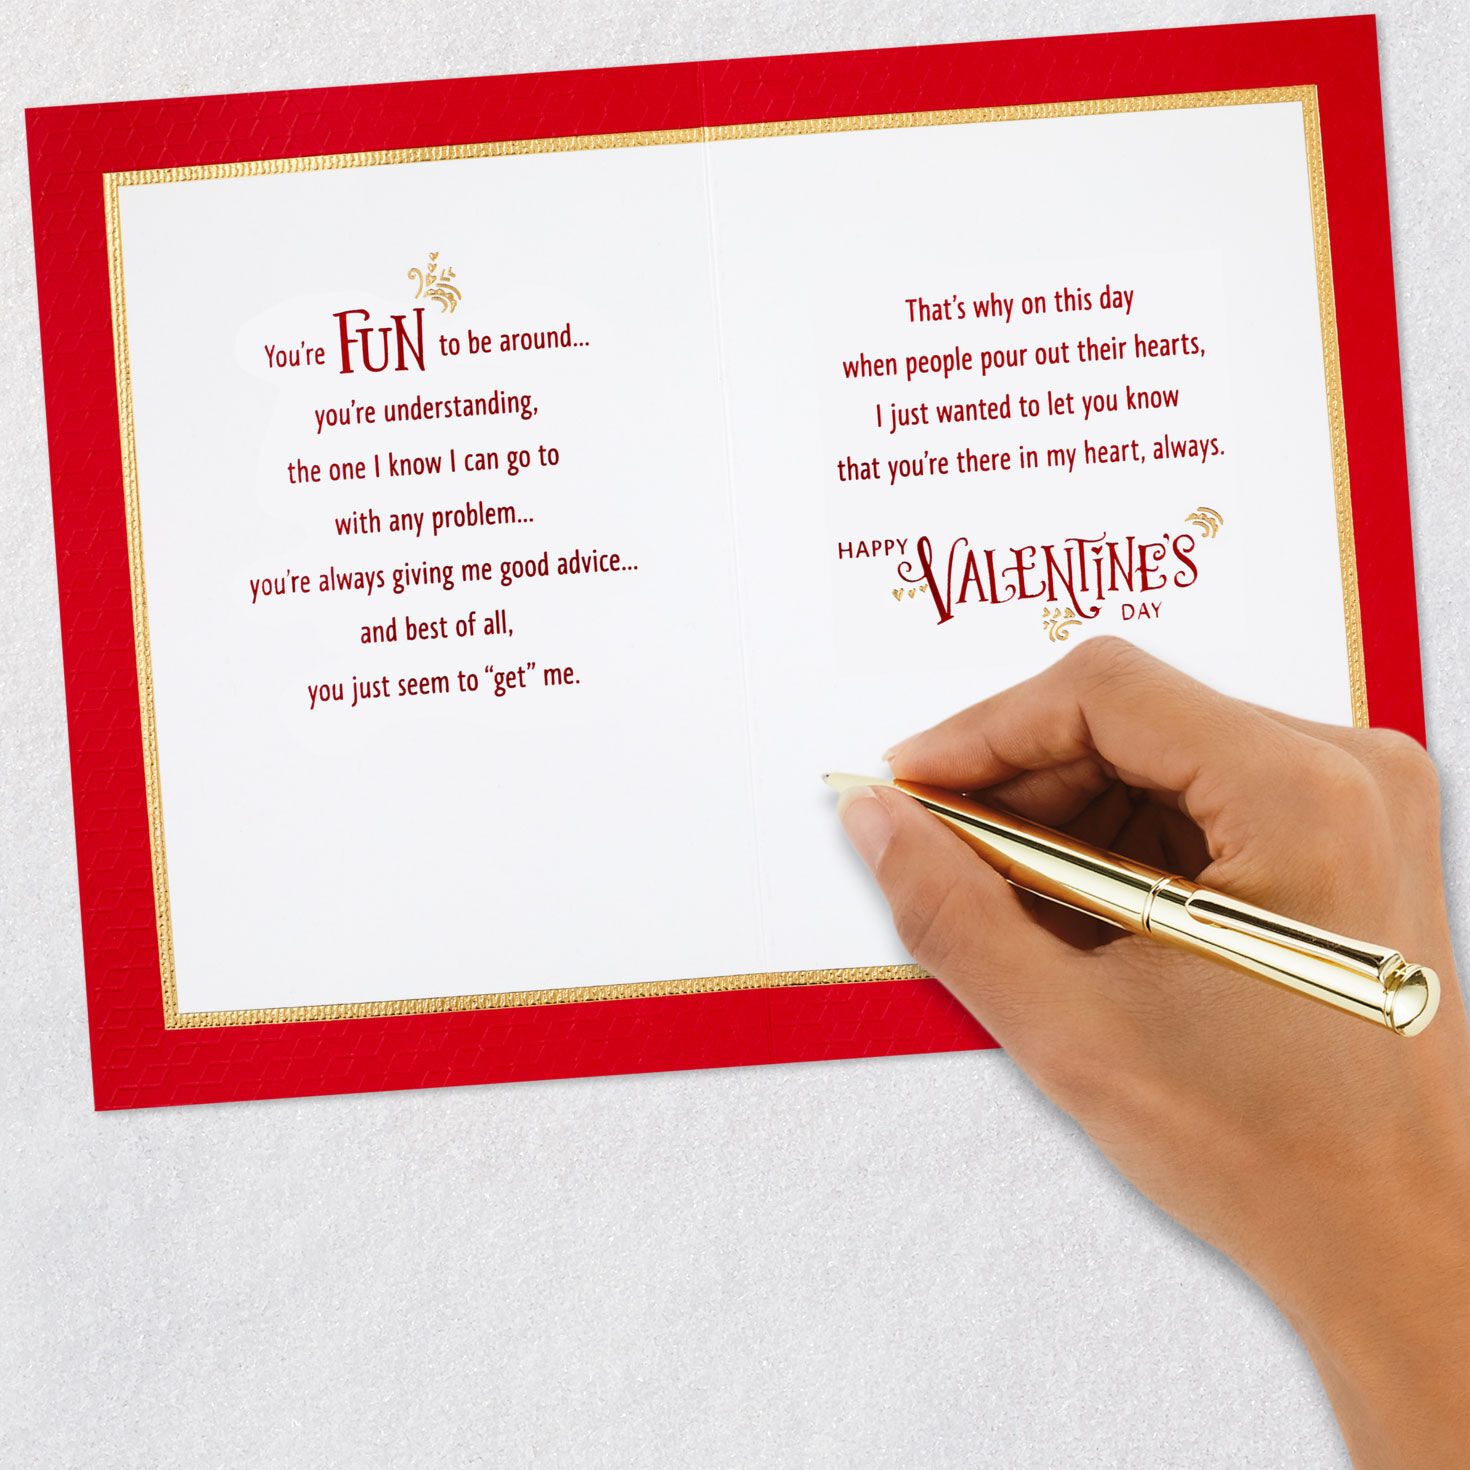 You're FUN to be around...
you're understanding,
the one I know I can go to
with any problem...
you're always giving me good advice...
and best of all,
you just seem to “get” me.
That's why on this day
when people pour out their hearts,
I just wanted to let you know
that you're there in my heart, always.
HAPPY VALENTINE'S
DAY